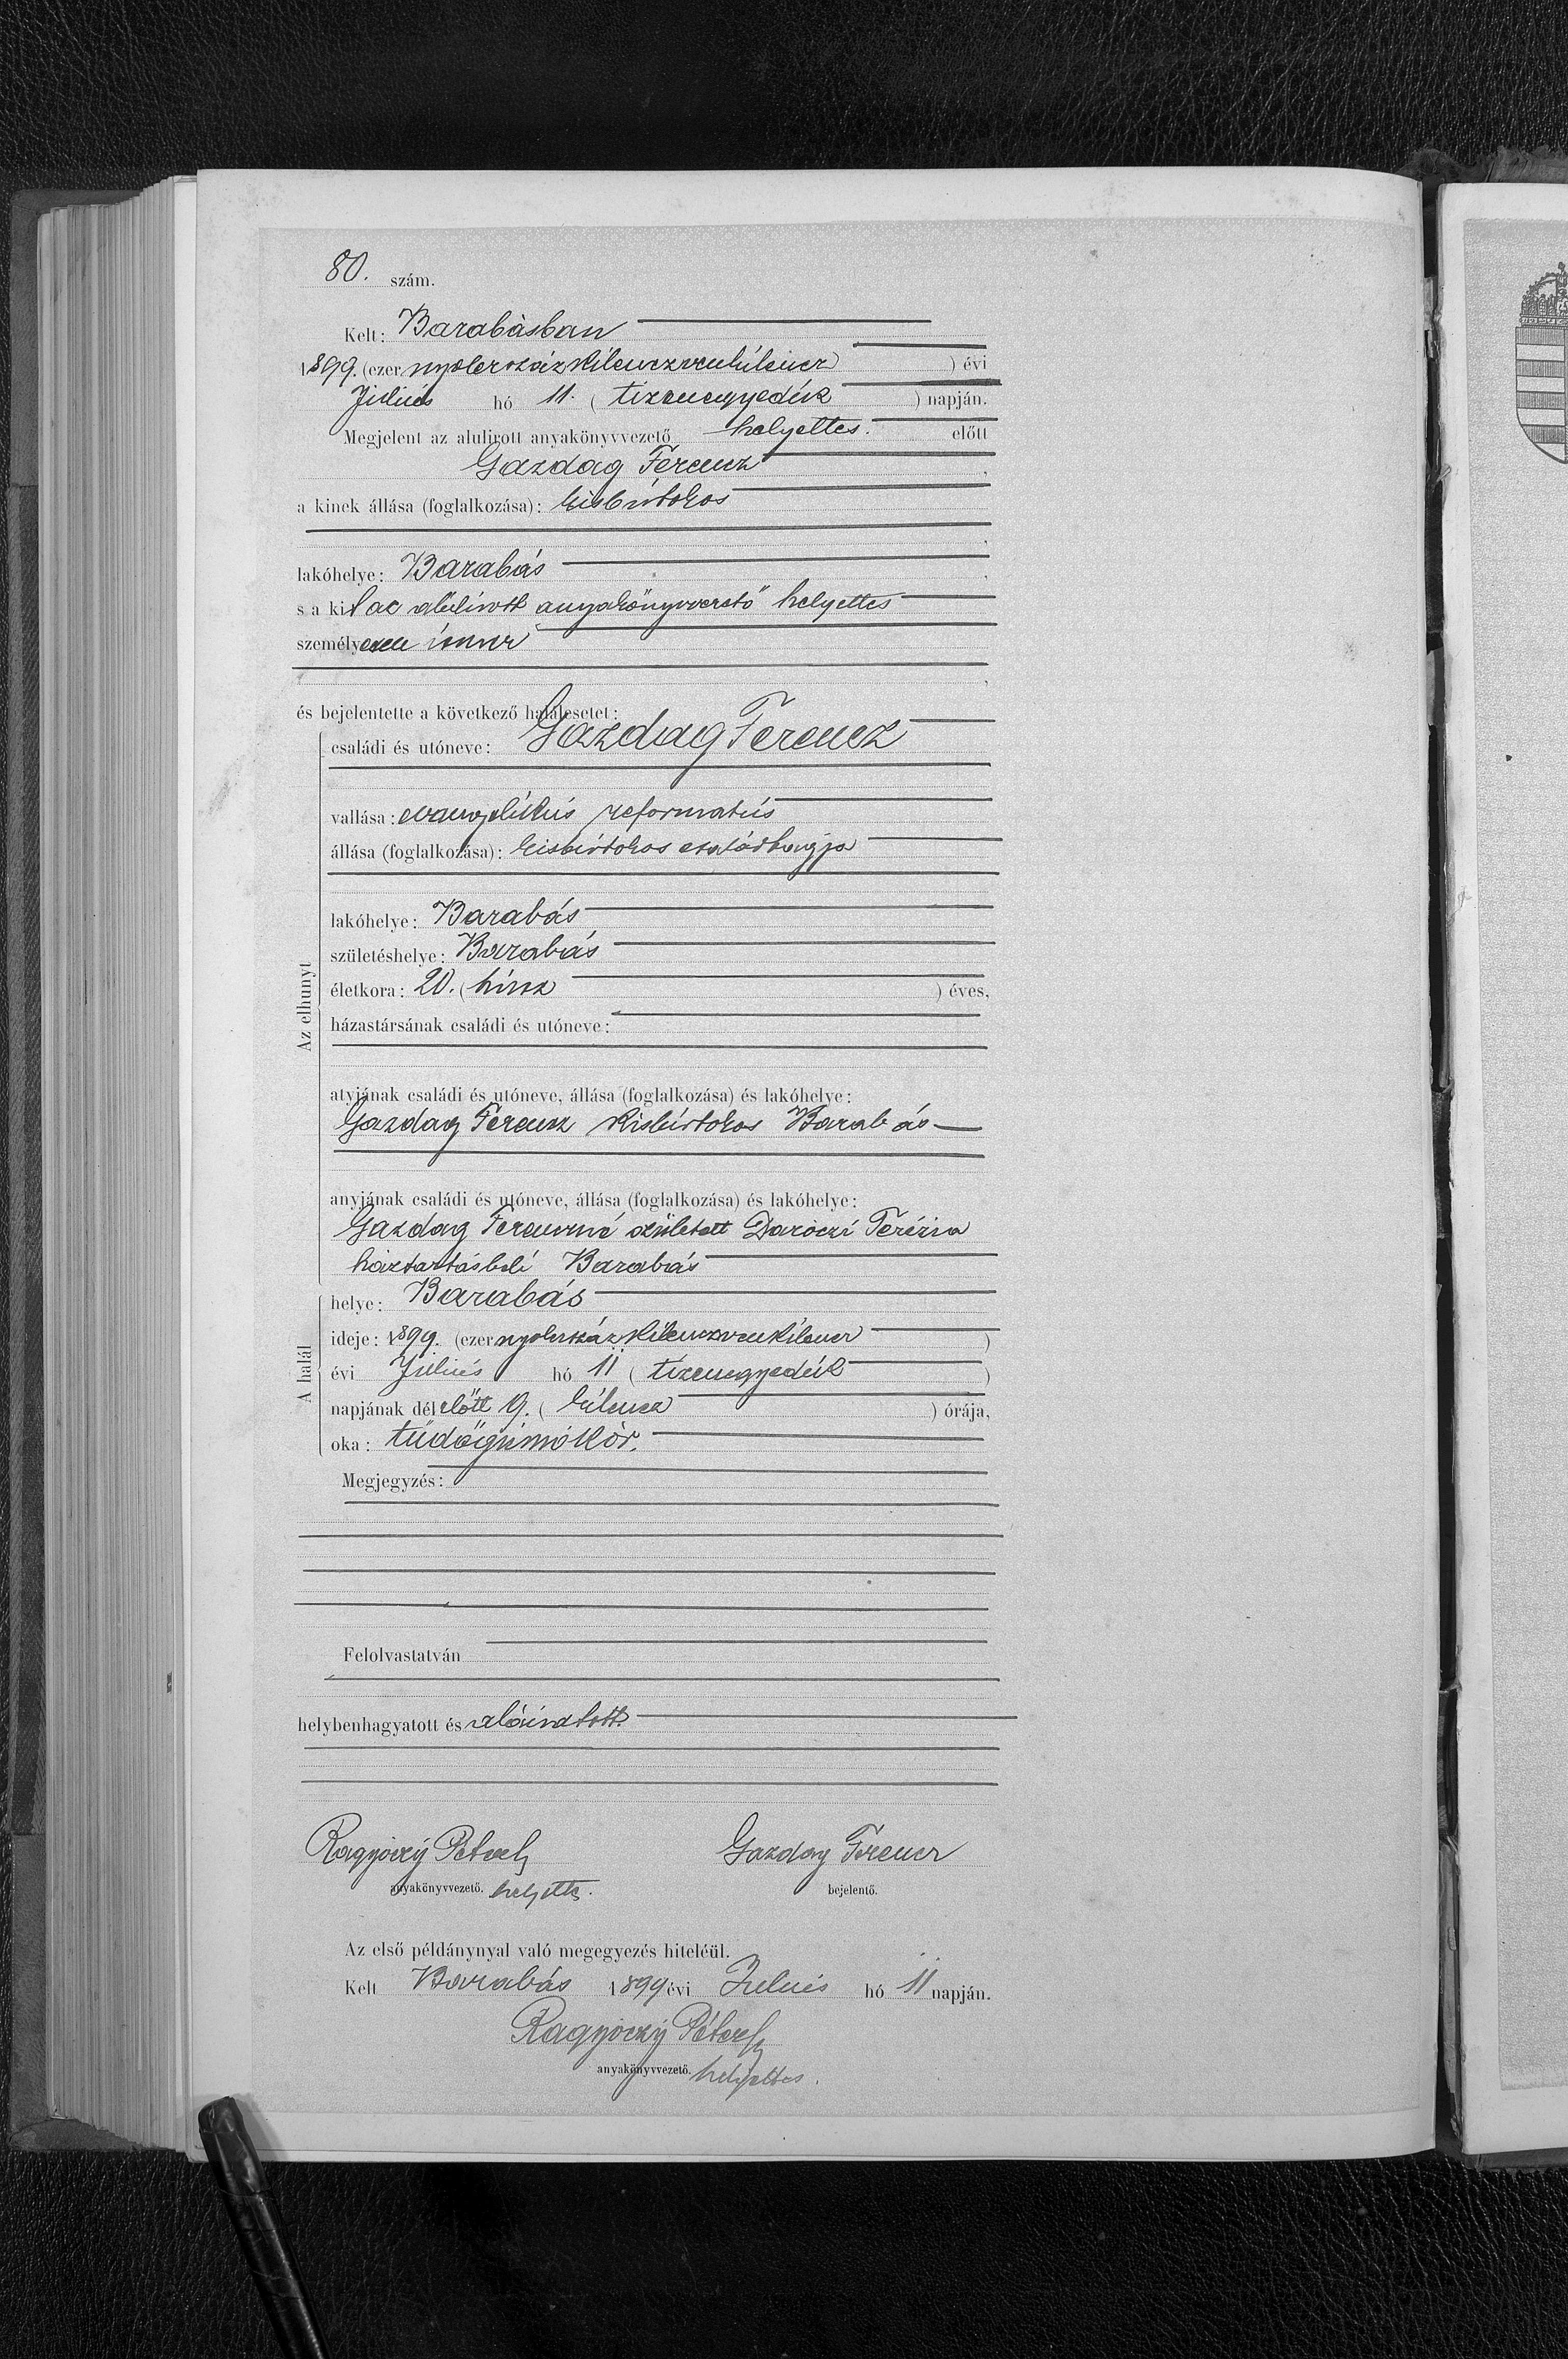 80. szám.
Kelt: Barabásban
1899. (ezer nyolczszázkilenczvenkilencz) évi
Július hó 11. (tizenegyedik) napján.
Megjelent az alulirott anyakönyvvezető helyettes. előtt
Gazdag Ferencz
a kinek állása (foglalkozása): kisbirtokos
lakóhelye: Barabás
s a kit az alulirott anyakönyvvezető helyettes
személyesen ismer
és bejelentette a következő halálesetet:
családi és utóneve: Gazdag Ferencz
vallása: evangelikus reformatus
állása (foglalkozása): kisbirtokos családtagja
lakóhelye: Barabás
születéshelye: Barabás
Az elhunyt
életkora: 20. (húsz) éves,
házastársának családi és utóneve:
atyjának családi és utóneve, állása (foglalkozása) és lakóhelye:
Gazdag Ferencz kisbirtokos Barabás
anyjának családi és utóneve, állása (foglalkozása) és lakóhelye:
Gazdag Ferenczné született Daróczi Terézia
háztartásbeli Barabás
helye: Barabás
A halál
ideje: 1899. (ezer nyolczszázkilenczvenkilencz)
évi Július hó 11 (tizenegyedik)
napjának dél előtt 9. (kilencz) órája,
oka: tüdőgümőkór.
Megjegyzés:
Felolvastatván
helybenhagyatott és aláiratott.
Gazdag Ferencz
anyakönyvvezető. helyettes. bejelentő.
Az első példánynyal való megegyezés hiteléül.
Kelt Barabás 1899 évi Julius hó 11 napján.
anyakönyvvezető. helyettes.